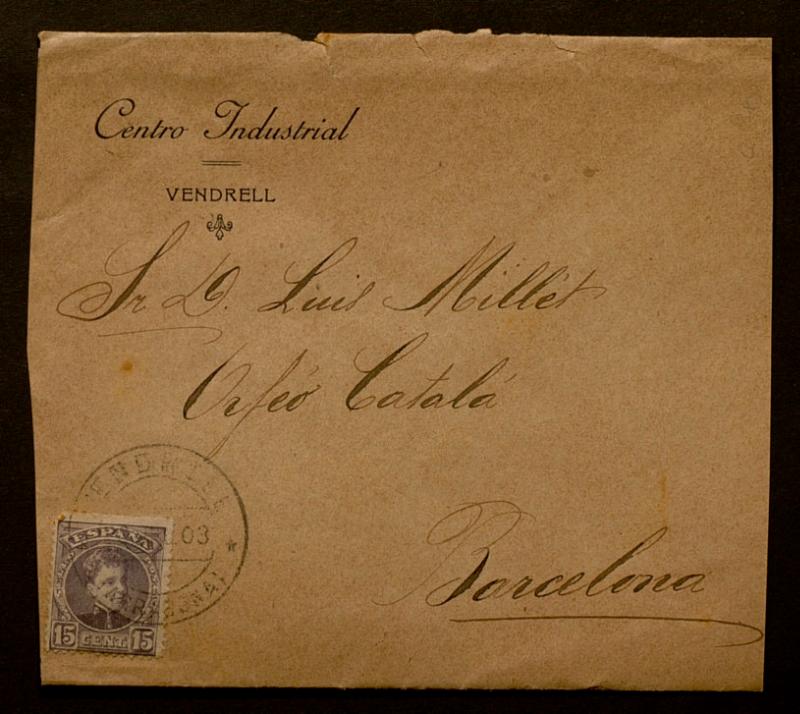 Centro Industrial
VENDRELL
Sr D. Luis Millet
Orfeó Catalá
Barcelona
VENDRELL
03
ESPAÑA
15 CENT. 15